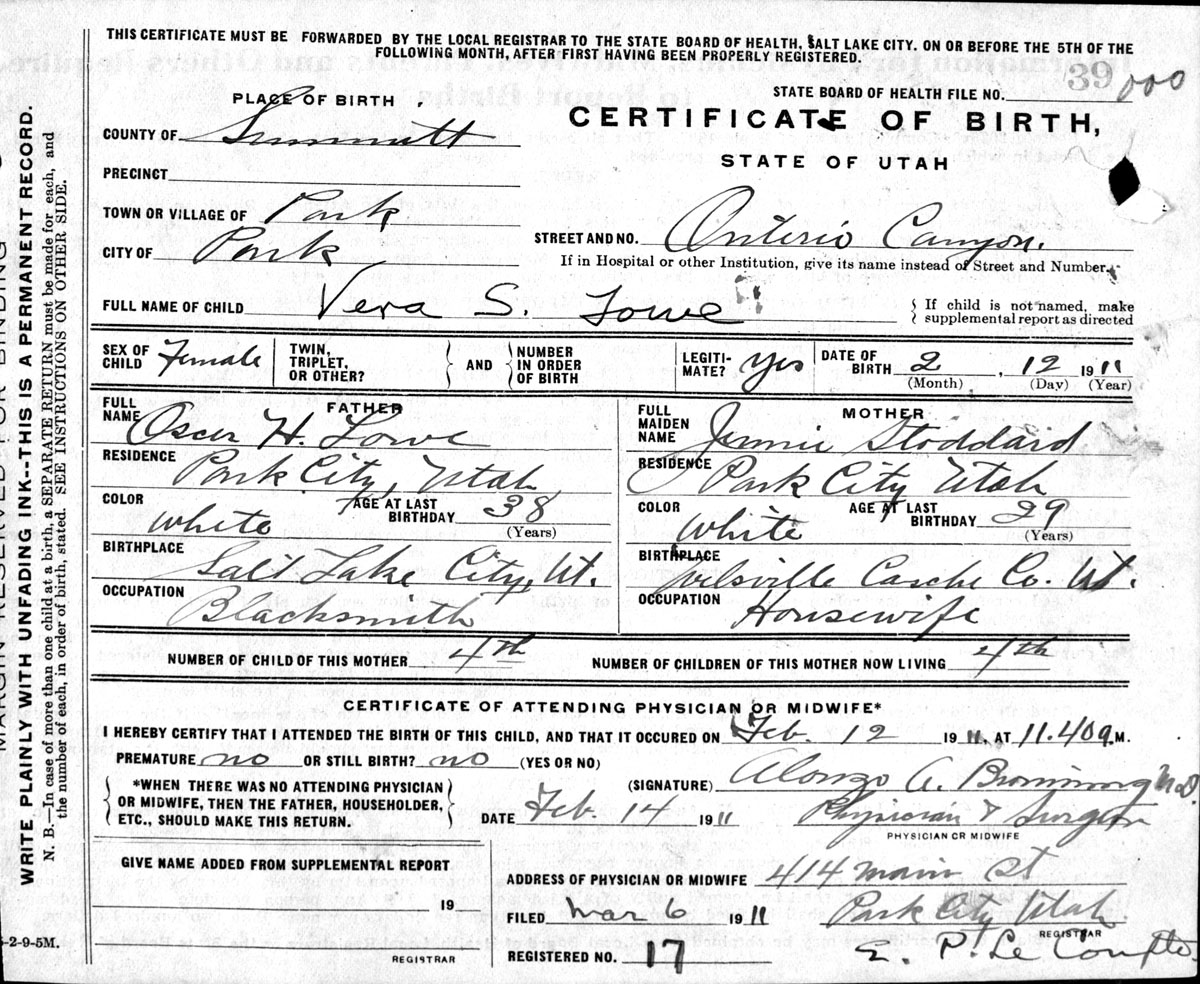 THIS CERTIFICATE MUST BE FORWARDED BY THE LOCAL REGISTRAR TO THE STATE BOARD OF HEALTH, SALT LAKE CITY. ON OR BEFORE THE 5TH OF THE
FOLLOWING MONTH, AFTER FIRST HAVING BEEN PROPERLY REGISTERED.
STATE BOARD OF HEALTH FILE NO. 39 000
PLACE OF BIRTH
CERTIFICATE OF BIRTH,
STATE OF UTAH
COUNTY OF Summitt
PRECINCT
TOWN OR VILLAGE OF Park
CITY OF Park
STREET AND NO. Onterio Canyon.
If in Hospital or other Institution, give its name instead of Street and Number.
FULL NAME OF CHILD Vera S. Lowe
If child is not named, make
supplemental report as directed
SEX OF CHILD Female TWIN, TRIPLET, OR OTHER? AND NUMBER IN ORDER OF BIRTH LEGITI-MATE? yes DATE OF BIRTH 2, 12 1911
(Month) (Day) (Year)
FATHER
FULL NAME Oscar H. Lowe
RESIDENCE Park City, Utah
COLOR White AGE AT LAST BIRTHDAY 38
(Years)
BIRTHPLACE Salt Lake City, Ut.
OCCUPATION Blacksmith
MOTHER
FULL MAIDEN NAME Jennie Stoddard
RESIDENCE Park City Utah
COLOR White AGE AT LAST BIRTHDAY 29
(Years)
BIRTHPLACE Welsville Casche Co. Ut.
OCCUPATION Housewife
NUMBER OF CHILD OF THIS MOTHER 4th NUMBER OF CHILDREN OF THIS MOTHER NOW LIVING 4th
CERTIFICATE OF ATTENDING PHYSICIAN OR MIDWIFE*
I HEREBY CERTIFY THAT I ATTENDED THE BIRTH OF THIS CHILD, AND THAT IT OCCURED ON Feb. 12 1911, AT 11.40 a.M.
PREMATURE no OR STILL BIRTH? no (YES OR NO)
*WHEN THERE WAS NO ATTENDING PHYSICIAN
OR MIDWIFE, THEN THE FATHER, HOUSEHOLDER,
ETC., SHOULD MAKE THIS RETURN.
(SIGNATURE) Alonzo A. M.D
DATE Feb. 14 1911 Physician & Surgeon
PHYSICIAN OR MIDWIFE
GIVE NAME ADDED FROM SUPPLEMENTAL REPORT
19
REGISTRAR
ADDRESS OF PHYSICIAN OR MIDWIFE 414 Main St
FILED Mar 6 1911 Park City Utah.
REGISTRAR
REGISTERED NO. 17 E. P. Le Compte.
5-2-9-5M.
MARGIN RESERVED FOR BINDING
WRITE PLAINLY WITH UNFADING INK--THIS IS A PERMANENT RECORD.
N. B.—In case of more than one child at a birth, a SEPARATE RETURN must be made for each, and
the number of each, in order of birth, stated. SEE INSTRUCTIONS ON OTHER SIDE.